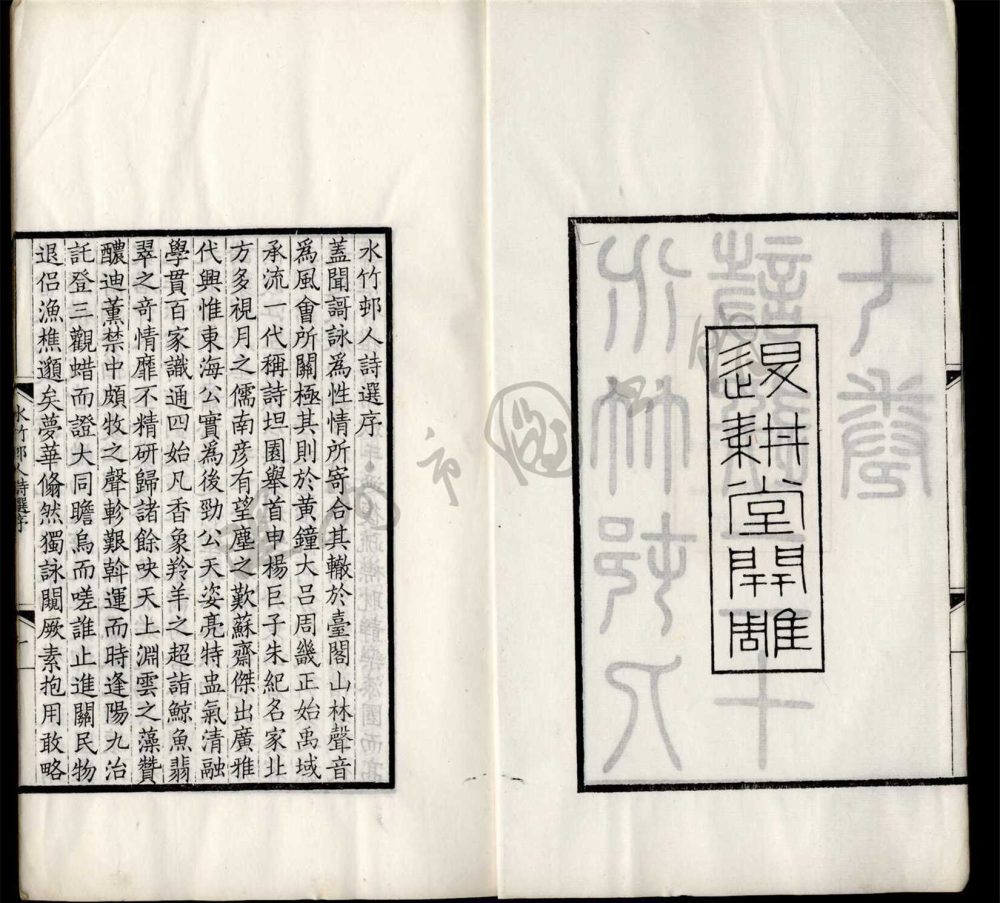 退耕堂開雕
水竹邨人詩選序
蓋聞謌詠為性情所寄合其轍於臺閣山林聲音
為風會所關極其則於黃鐘大呂周畿正始禹域
承流一代稱詩坦園舉首申楊巨子朱紀名家北
方多視月之儒南彥有望塵之歎蘇齋傑出廣雅
代興惟東海公實為後勁公天姿亮特蛊氣清融
學貫百家識通四始凡香象羚羊之超詣鯨魚翡
翠之奇情靡不精研歸諸餘吷天上淵雲之藻贊
醲迪薰禁中頗牧之聲軫艱斡運而時逢陽九治
託登三觀蜡而證大同瞻烏而嗟誰止進關民物
退侶漁樵邈矣夢華翛然獨詠闚厥素抱用敢略
水竹邨人詩選序
一